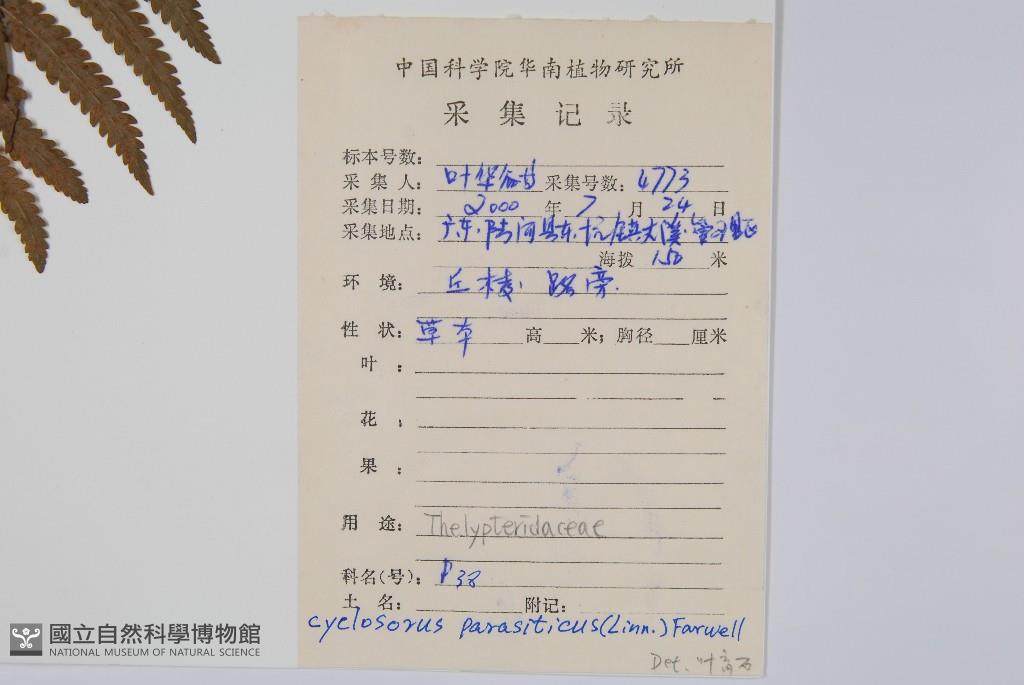 中国科学院华南植物研究所
采集记录
标本号数：
采集人：叶华谷 采集号数：4773
采集日期：2000年7月24日
采集地点：广东·陆河县东坑镇大溪·
海拨 150 米
环境：丘陵，路旁．
性状：草本 高 米；胸径 厘米
叶：
花：
果：
用途：Thelypteridaceae
科名(号)：P38
土名： 附记：
cyclosorus parasiticus (Linn.) Farwell
Det. 叶
國立自然科學博物館
NATIONAL MUSEUM OF NATURAL SCIENCE